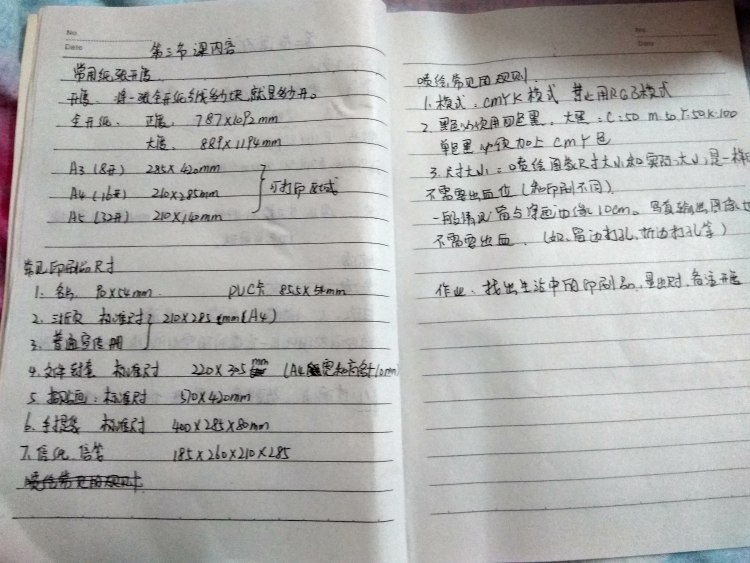 No.
Date
第三节 课内容
常用纸张开度
开度：将一张全开纸分成多少块，就是多少开。
全开纸： 正度： 787×1092mm
大度： 889×1194mm
A3 (8开) 285×420mm
A4 (16开) 210×285mm 可打印正式
A5 (32开) 210×140mm
常见印刷品尺寸
1. 名片 90×54mm PVC卡 85.5×54mm
2. 三折页 标准尺寸 210×285mm(A4)
3. 普通宣传册
4. 文件封套 标准尺寸 220×305mm (A4宽和高会十10mm)
5. 招贴画：标准尺寸 570×420mm
6. 手提袋 标准尺寸 400×285×80mm
7. 信纸 信笺 185×260×210×285
喷绘常见的规则
No.
Date
喷绘常见的规则
1. 模式：CMYK模式 禁止用RGB模式
2. 黑色必使用四色黑，大黑：C:50 M:50 Y:50 K:100
单色黑必须加上CMY色
3. 尺寸大小：喷绘图数尺寸大小和实际大小是一样
不需要出血位(和印刷不同)
一般情况留与净画边缘10cm。写真输出同常
不需要出血。(如：留边打孔，折边打孔等)
作业：找出生活中的印刷品，量出尺寸，备注开度